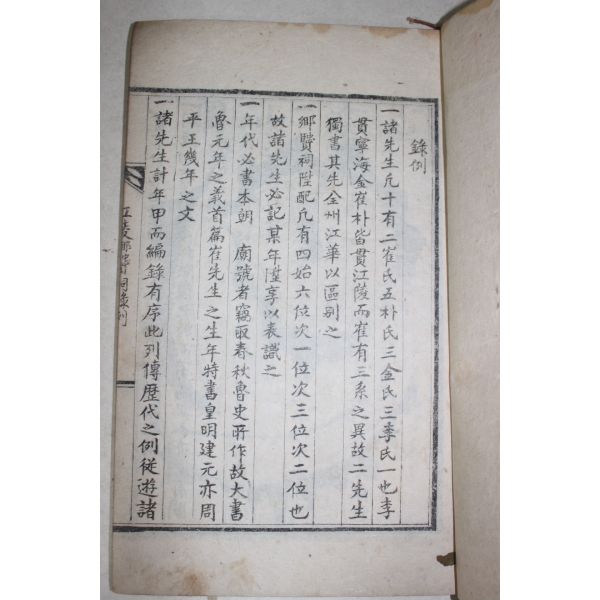 錄例
一諸先生凡十有二崔氏五朴氏三金氏三李氏一也李
貫寧海金崔朴皆貫江陵而崔有三系之異故二先生
獨書其先全州江華以區别之
一鄕賢祠陞配凡有四始六位次一位次三位次二位也
故諸先生必記某年陞享以表識之
一年代必書本朝 廟號者竊取春秋魯史所作故大書
魯元年之義首篇崔先生之生年特書皇明建元亦周
平王幾年之文
一諸先生計年甲而編錄有序此列傳歷代之例從遊諸
江陵鄕賢祠錄例